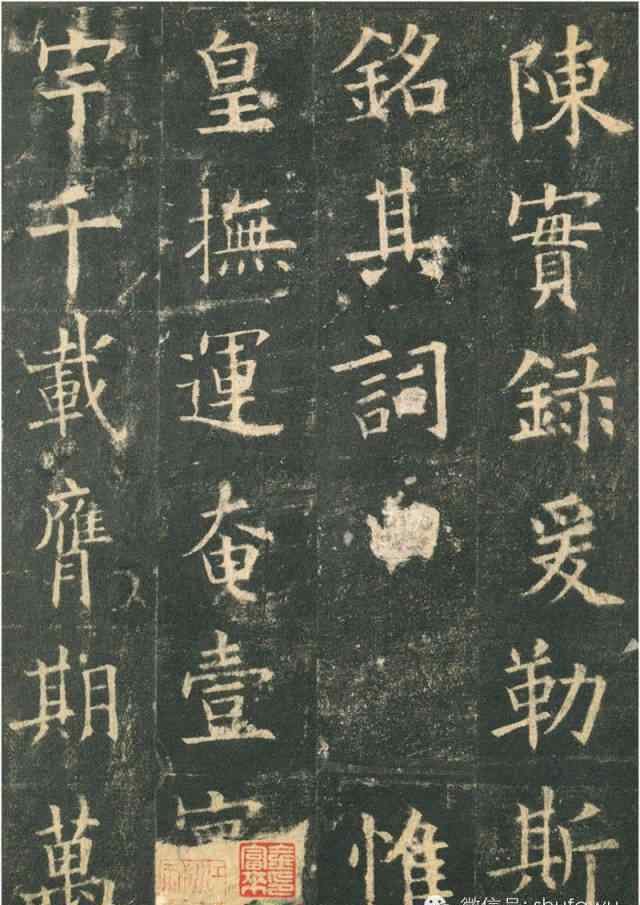 陳實錄爰勒斯
銘其詞惟
皇撫運奄壹
宇千載膺期萬
微信号: